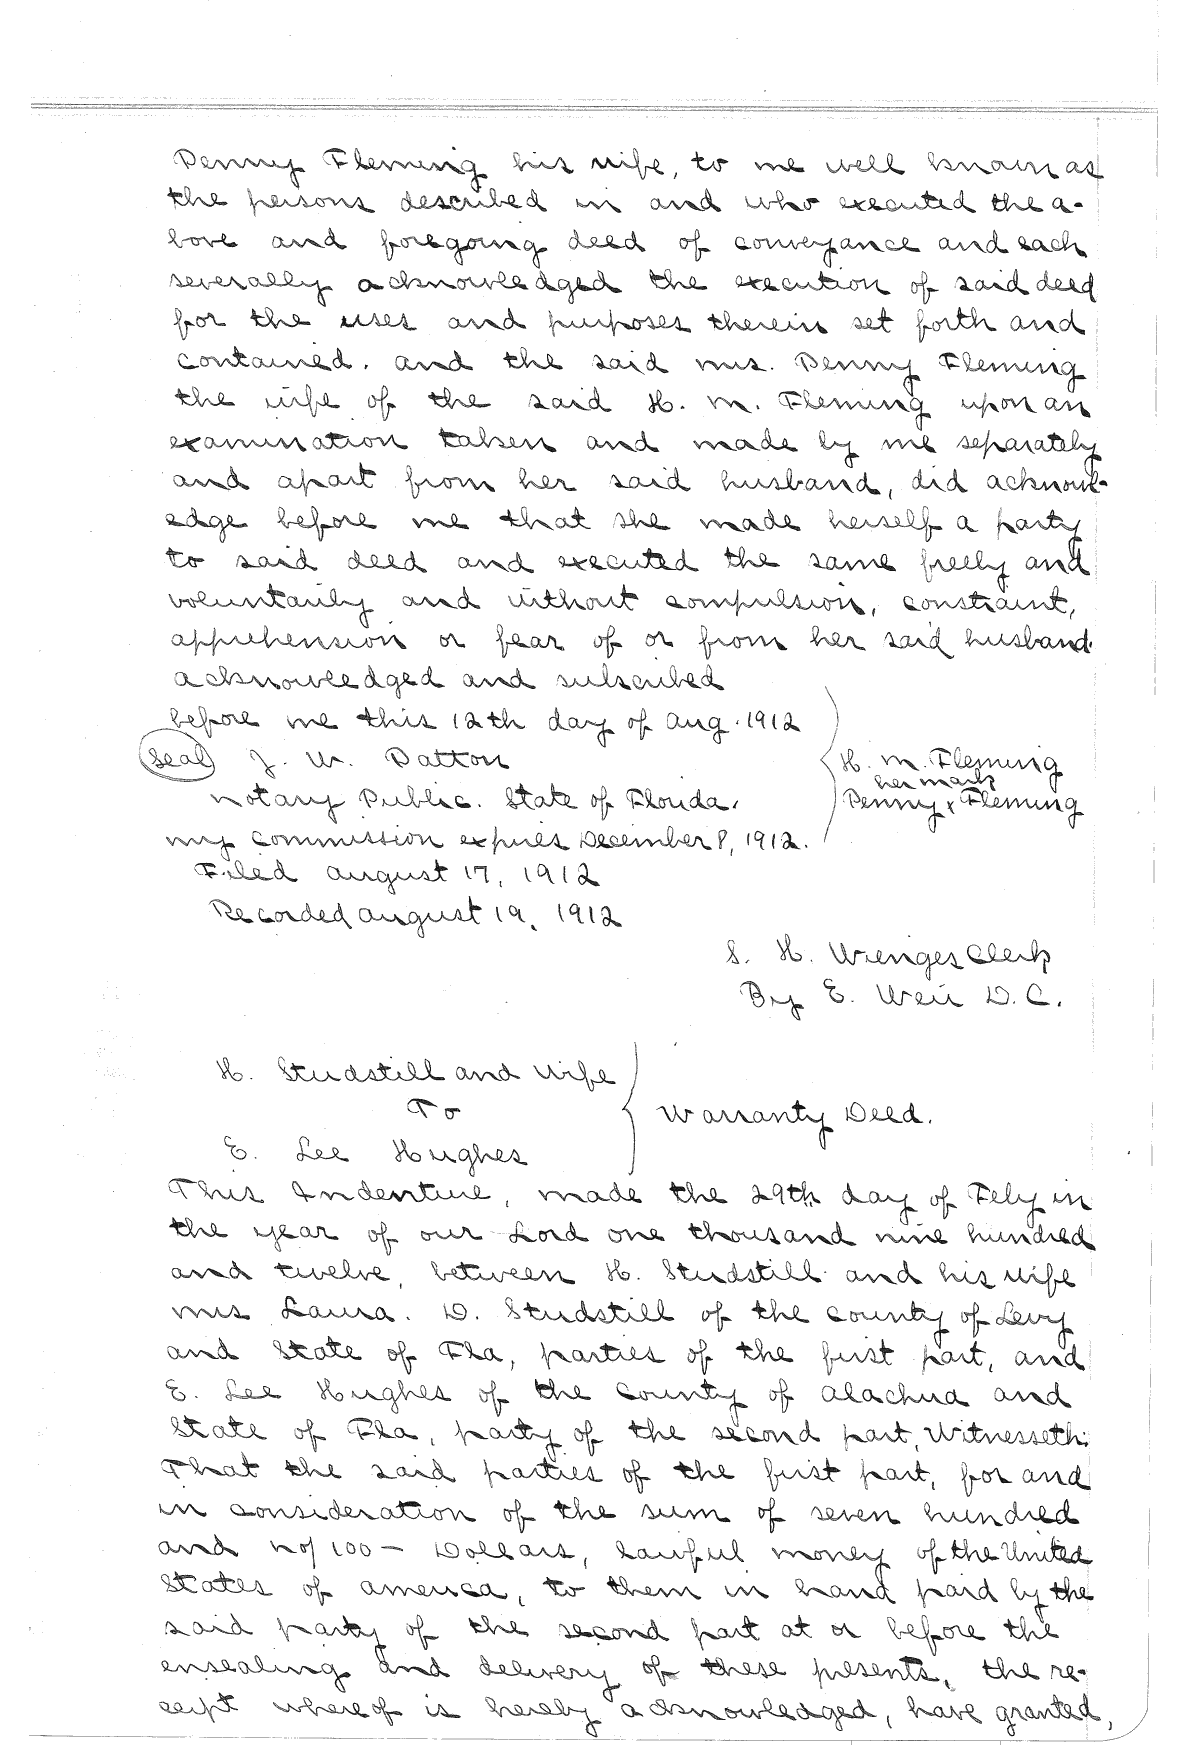 Penny Fleming his wife, to me well known as
the persons described in and who executed the a-
bove and foregoing deed of conveyance and each
severally acknowledged the execution of said deed
for the uses and purposes therein set forth and
contained. and the said mrs. Penny Fleming
the wife of the said H. M. Fleming upon an
examination taken and made by me separately
and apart from her said husband, did acknowl-
edge before me that she made herself a party
to said deed and executed the same freely and
voluntarily and without compulsion, constraint,
apprehension or fear of or from her said husband.
acknowledged and subscribed
before me this 12th day of Aug. 1912
Seal J. W. Patton
Notary Public. State of Florida.
my commission expires December 8, 1912.
H. M. Fleming
her mark
Penny x Fleming
Filed August 17, 1912
Recorded August 19, 1912
S. H. Wienges Clerk
By E. Weir D. C.
H. Studstill and wife
To
E. Lee Hughes
Warranty Deed.
This Indenture, made the 29th day of Feby in
the year of our Lord one thousand nine hundred
and twelve, between H. Studstill and his wife
mrs Laura. D. Studstill of the county of Levy
and State of Fla, parties of the first part, and
E. Lee Hughes of the County of Alachua and
State of Fla, party of the second part, Witnesseth.
That the said parties of the first part, for and
in consideration of the sum of seven hundred
and no/100 - Dollars, lawful money of the United
States of America, to them in hand paid by the
said party of the second part at or before the
ensealing and delivery of these presents, the re-
ceipt whereof is hereby acknowledged, have granted,